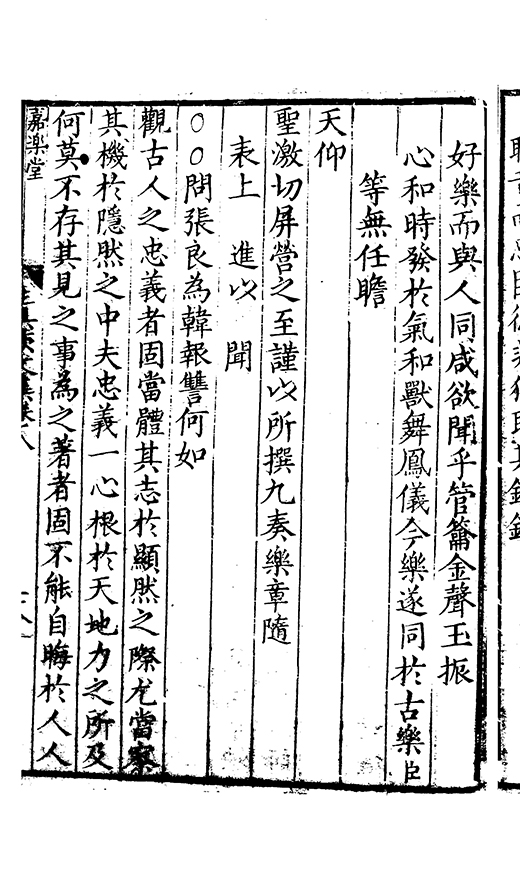 好樂而與人同咸欲聞乎管籥金聲玉振
心和時發於氣和獸舞鳳儀今樂遂同於古樂臣
等無任瞻
天仰
聖激切屏營之至謹以所撰九奏樂章隨
表上進以聞
○○問張良為韓報讐何如
觀古人之忠義者固當體其志於顯然之際尤當察
其機於隱然之中夫忠義一心根於天地力之所及
何莫不存其見之事為之著者固不能自晦於人人
嘉樂堂